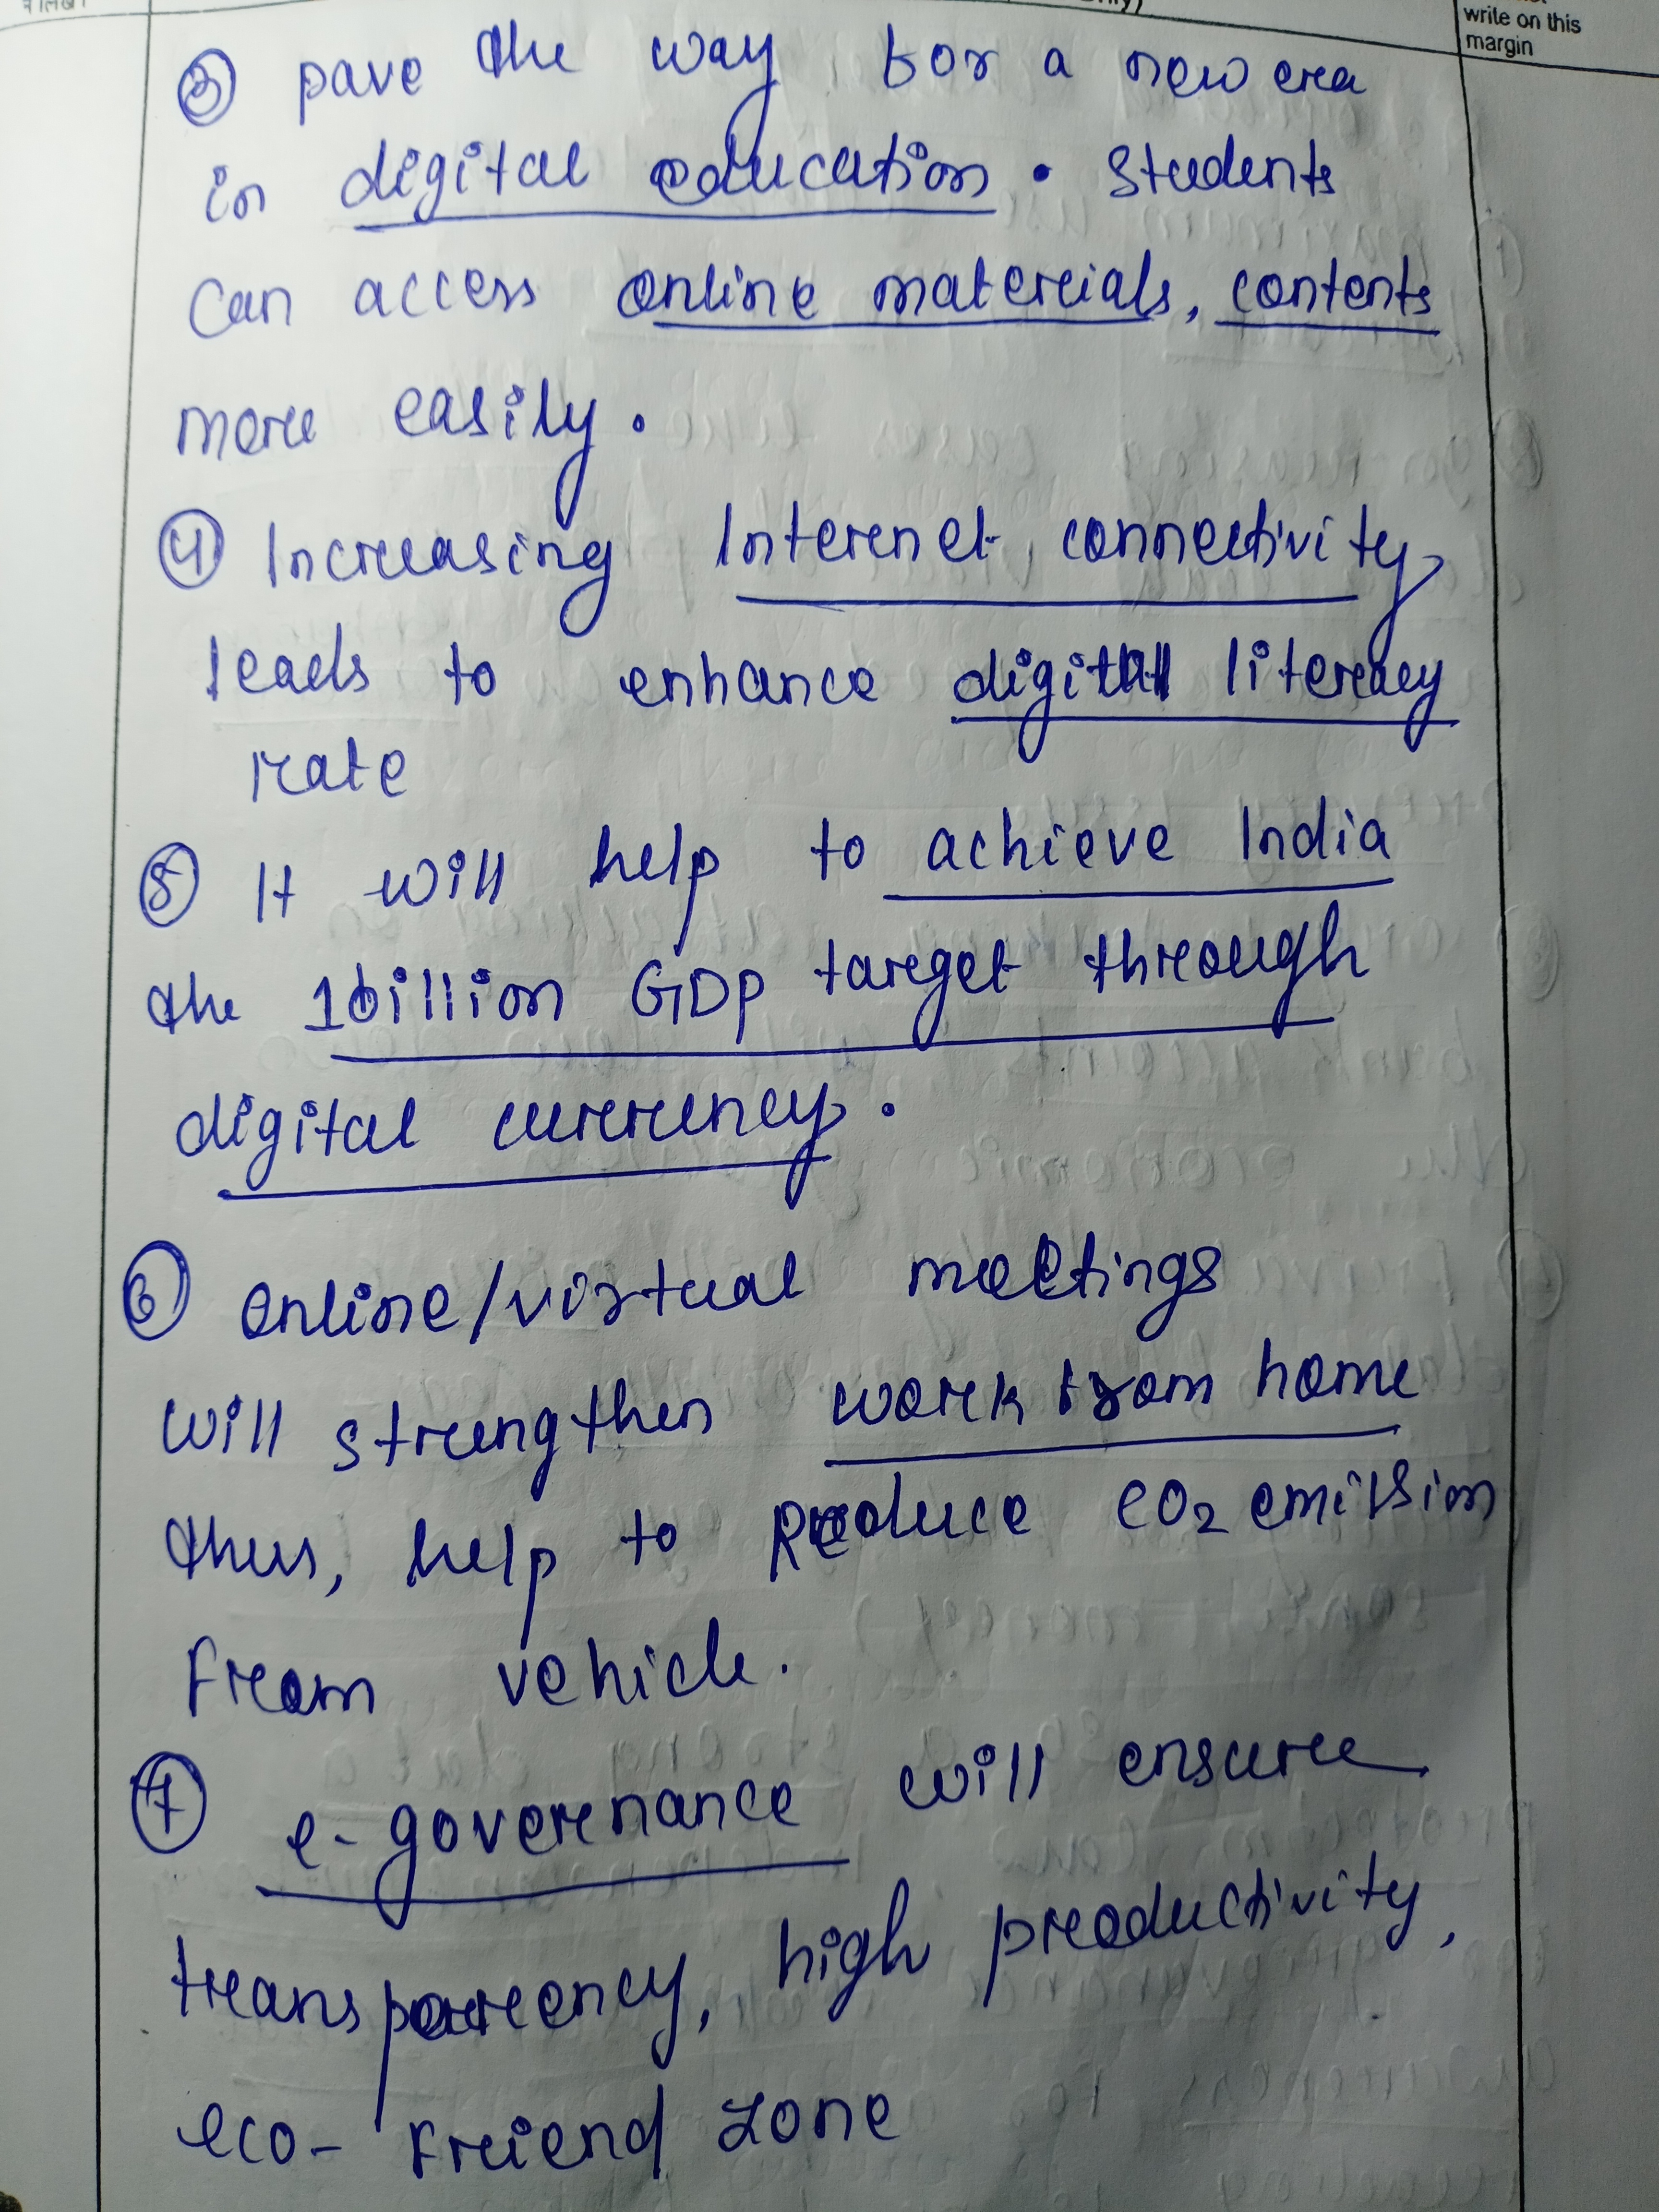 write on this
margin
③ pave the way for a new era
in digital education. Students
can access online materials, contents
more easily.
④ Increasing Internet connectivity
leads to enhance digital literacy
rate
⑤ It will help to achieve India
the 1billion GDP target through
digital currency.
⑥ online/virtual meetings
will strengthen work from home
thus, help to Reduce CO₂ emission
from vehicle.
⑦ e-governance will ensure
transparency, high productivity,
eco-friend zone